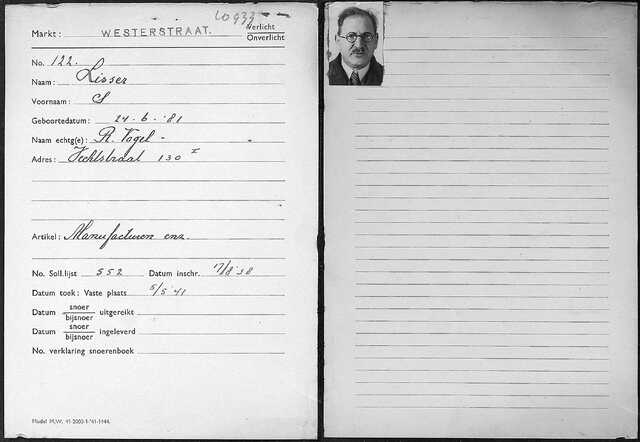 Markt: WESTERSTRAAT. Verlicht
Onverlicht
No. 122.
Naam: Lisser
Voornaam: S
Geboortedatum: 24-6-'81
Naam echtg(e): R. Vogel -
Adres: Vechtstraat 130 I
Artikel: Manufacturen enz.
No. Soll.lijst 552 Datum inschr. 7/8 '38
Datum toek: Vaste plaats 5/5 '41
Datum snoer
bijsnoer uitgereikt
Datum snoer
bijsnoer ingeleverd
No. verklaring snoerenboek